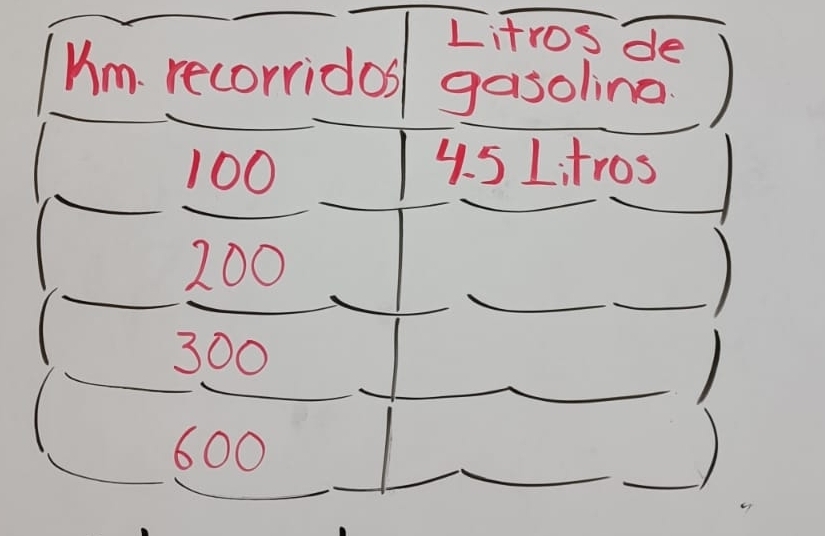 Km. recorridos
Litros de
gasolina.
100
4.5 Litros
200
300
600